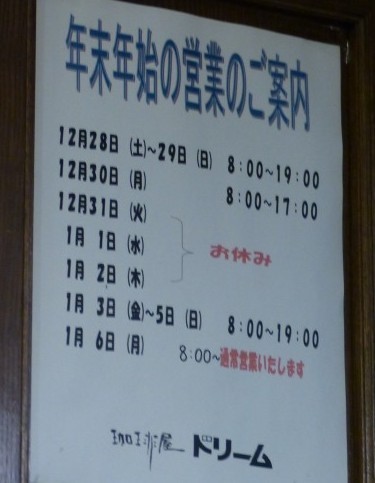 年末年始の営業のご案内
12月28日（土）～29日（日） 8：00～19：00
12月30日（月） 8：00～17：00
12月31日（火）
1月 1日（水） お休み
1月 2日（木）
1月 3日（金）～5日（日） 8：00～19：00
1月 6日（月） 8：00～通常営業いたします
珈琲屋 ドリーム